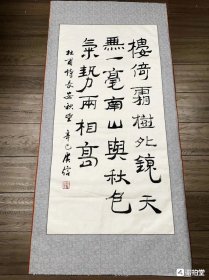 樓倚霜樹外鏡天
無一毫南山與秋色
氣勢兩相高
杜牧詩長安秋望辛巳